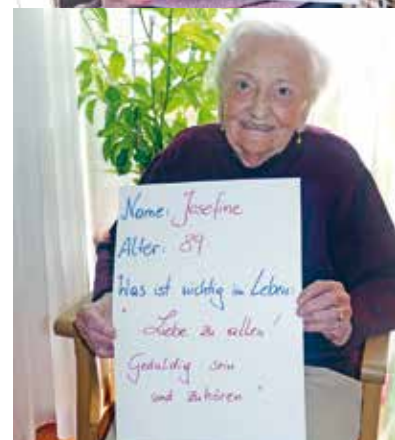 Name: Josefine
Alter: 89
Was ist wichtig im Leben:
"Liebe zu allen!
Geduldig sein
und zuhören"